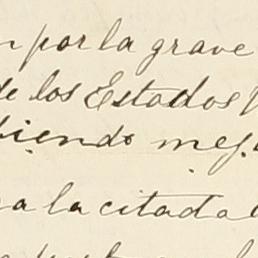 por la grave
de los Estados
biendo mej
a la citada